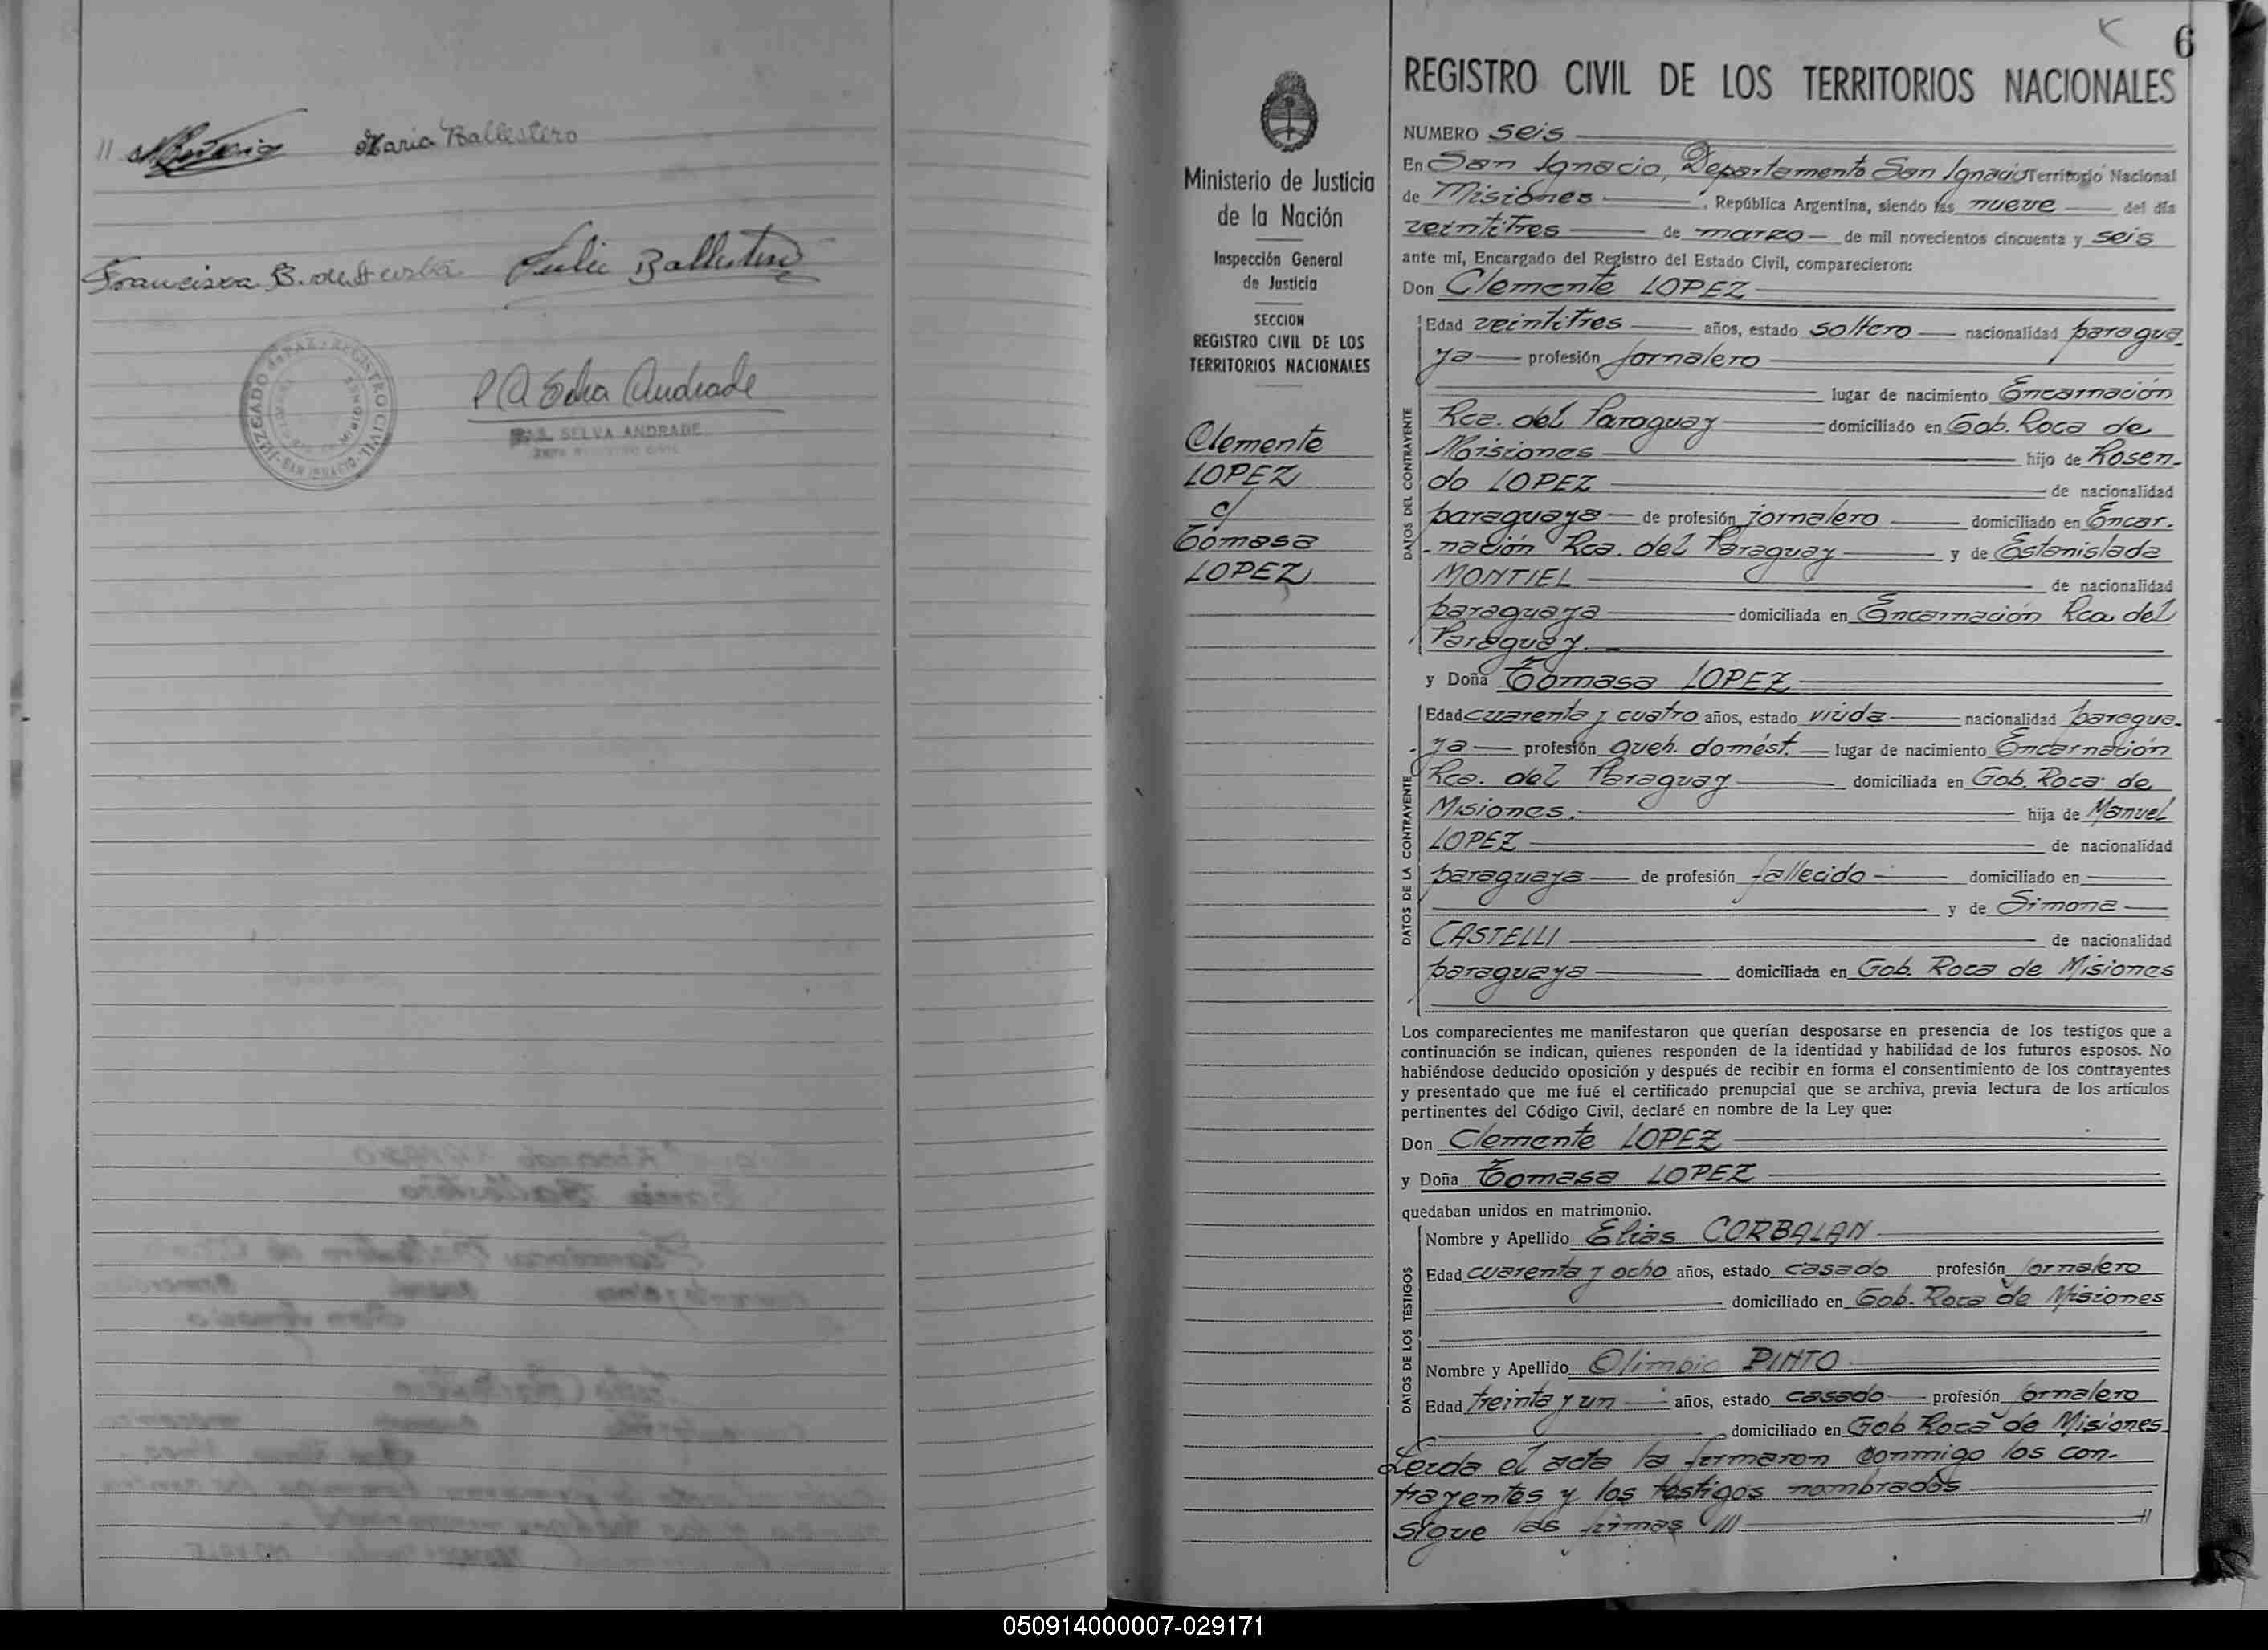 María Ballestero
Francisca B. de Acosta Julio Ballestero
JUZGADO de PAZ y REGISTRO CIVIL
SAN IGNACIO
P A Selva Andrade
SELVA ANDRADE
6
REGISTRO CIVIL DE LOS TERRITORIOS NACIONALES
Ministerio de Justicia
de la Nación
Inspección General
de Justicia
SECCION
REGISTRO CIVIL DE LOS
TERRITORIOS NACIONALES
Clemente
LOPEZ
c/
Tomasa
LOPEZ
NUMERO seis
En San Ignacio, Departamento San Ignacio Territorio Nacional
de Misiones, República Argentina, siendo las nueve del día
veintitres de marzo de mil novecientos cincuenta y seis
ante mí, Encargado del Registro del Estado Civil, comparecieron:
Don Clemente LOPEZ
DATOS DEL CONTRAYENTE
Edad veintitres años, estado soltero nacionalidad paragua-
ya profesión jornalero
lugar de nacimiento Encarnación
Rca. del Paraguay domiciliado en Gob. Roca de
Misiones hijo de Rosen-
do LOPEZ de nacionalidad
paraguaya de profesión jornalero domiciliado en Encar-
-nación Rca. del Paraguay y de Estanislada
MONTIEL de nacionalidad
paraguaya domiciliada en Encarnación Rca del
Paraguay.
y Doña Tomasa LOPEZ
DATOS DE LA CONTRAYENTE
Edad cuarenta y cuatro años, estado viuda nacionalidad paragua-
-ya profesión queh. domést. lugar de nacimiento Encarnación
Rca. del Paraguay domiciliada en Gob. Roca de
Misiones. hija de Manuel
LOPEZ de nacionalidad
paraguaya de profesión fallecido domiciliado en
y de Simona
CASTELLI de nacionalidad
paraguaya domiciliada en Gob. Roca de Misiones
Los comparecientes me manifestaron que querían desposarse en presencia de los testigos que a
continuación se indican, quienes responden de la identidad y habilidad de los futuros esposos. No
habiéndose deducido oposición y después de recibir en forma el consentimiento de los contrayentes
y presentado que me fué el certificado prenupcial que se archiva, previa lectura de los artículos
pertinentes del Código Civil, declaré en nombre de la Ley que:
Don Clemente LOPEZ
y Doña Tomasa LOPEZ
quedaban unidos en matrimonio.
DATOS DE LOS TESTIGOS
Nombre y Apellido Elias CORBALAN
Edad cuarenta y ocho años, estado casado profesión jornalero
domiciliado en Gob. Roca de Misiones
Nombre y Apellido Olimpio PINTO
Edad treinta y un años, estado casado profesión jornalero
domiciliado en Gob Roca de Misiones
Leida el acta la firmaron conmigo los con-
trayentes y los testigos nombrados
sigue las firmas ///
050914000007-029171